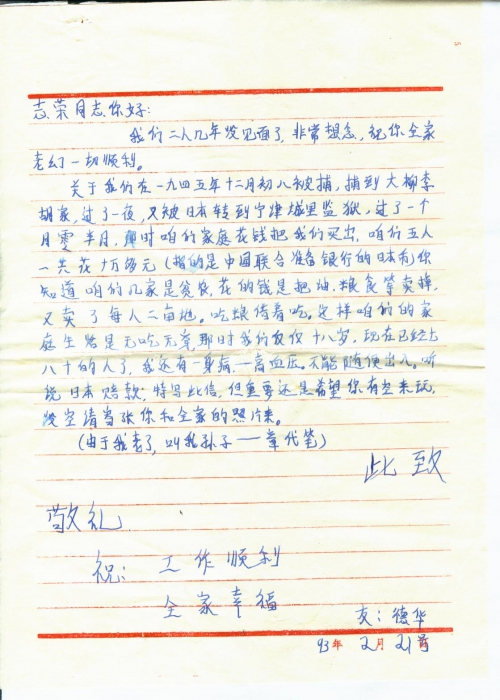 志荣同志你好:
我们二人几年没见面了,非常想念,祝你全家
老幼一切顺利。
关于我们在一九四五年十二月初八被捕,捕到大柳李
胡家,过了一夜,又被日本转到宁津城里监狱,过了一个
月零半月,那时咱的家庭花钱把我们买出,咱们五人
一共花十万多元(指的是中国联合准备银行的日本币)你
知道咱们几家是贫农,花的钱是把油、粮食等卖掉,
又卖了每人二亩地。吃粮借着吃。这样咱们的家
庭生活是无吃无穿,那时我们仅仅十八岁,现在已经七
八十的人了,我还有一身病,一高血压,不能随便出入。听
说日本赔款,特写此信,但重要还是希望你有空来玩,
没空请寄张你和全家的照片来。
(由于我老了,叫我孙子——章代笔)
此致
敬礼
祝:工作顺利
全家幸福
友:德华
93年2月21号